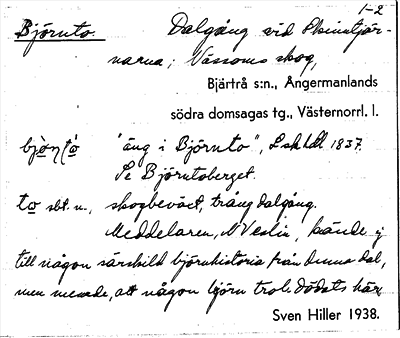 1-2
Björnto. Dalgång vid Skinntjär-
narna; Vässoms skog,
Bjärtrå s:n., Ångermanlands
södra domsagas tg., Västernorrl. l.
"äng i Björnto", L.sk.hdl. 1837.
Se Björntoberget.
to sbt. n., skogbeväxt, trång dalgång.
Meddelaren, N Veslin, kände ej
till någon särskild björnhistoria från denna dal,
men menade, att någon björn trol. dödats här.
Sven Hiller 1938.